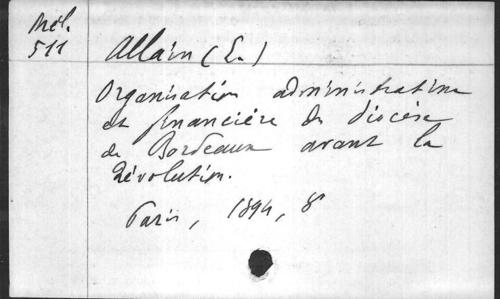 Mél.
511
Allain (E.)
Organisation administrative
et financière du diocèse
de Bordeaux avant la
Révolution.
Paris, 1894, 8°